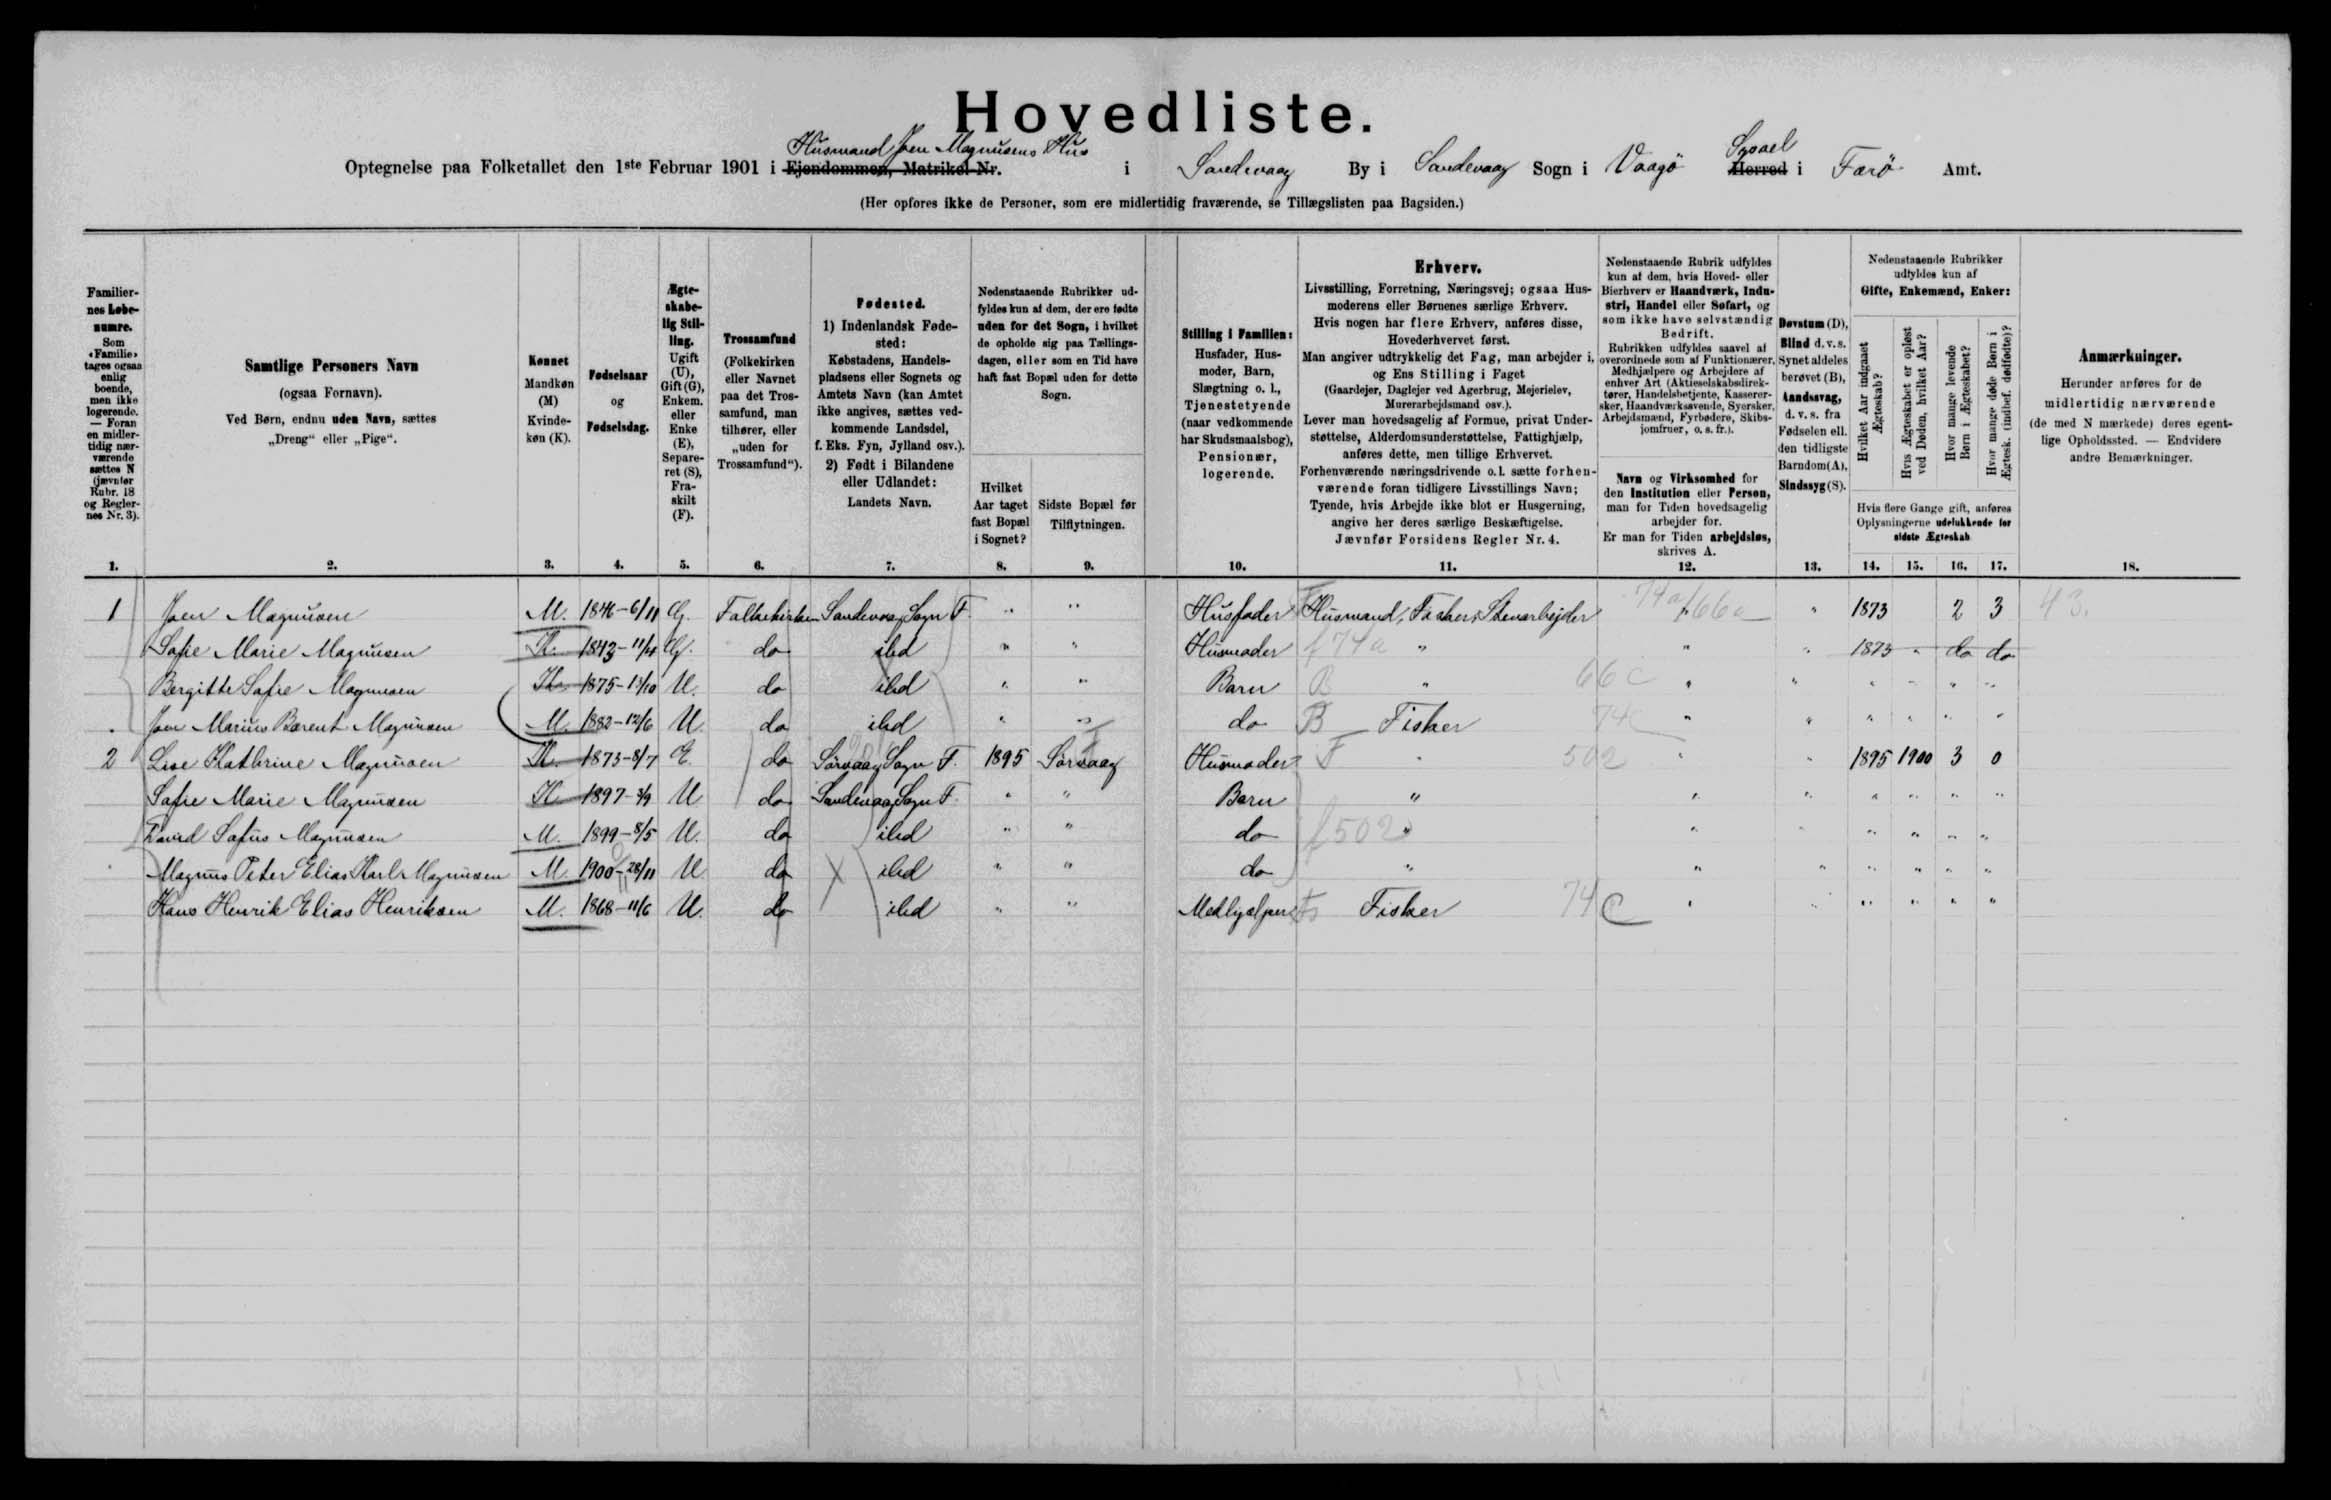 Hovedliste.
Husmand Joen Magnusens Hus Sysael
Optegnelse paa Folketallet den 1ste Februar 1901 i Ejendommen, Matrikel-Nr. i Sandevaag By i Sandevaag Sogn i Vaagø Herred i Færø Amt.
(Her opføres ikke de Personer, som ere midlertidig fraværende, se Tillægslisten paa Bagsiden.)
Familier-
nes Løbe-
numre.
Som
«Familie»
tages ogsaa
enlig
boende,
men ikke
logerende.
— Foran
en midler-
tidig nær-
værende
sættes N
(jævnfør
Rubr. 18
og Regler-
nes Nr. 3).
Samtlige Personers Navn
(ogsaa Fornavn).
Ved Børn, endnu uden Navn, sættes
„Dreng“ eller „Pige“.
Kønnet
Mandkøn
(M)
Kvinde-
køn (K).
Fødselsaar
og
Fødselsdag.
Ægte-
skabe-
lig Stil-
ling.
Ugift
(U),
Gift (G),
Enkem.
eller
Enke
(E),
Separe-
ret (S),
Fra-
skilt
(F).
Trossamfund
(Folkekirken
eller Navnet
paa det Tros-
samfund, man
tilhører, eller
„uden for
Trossamfund“).
Fødested.
1) Indenlandsk Føde-
sted:
Købstadens, Handels-
pladsens eller Sognets og
Amtets Navn (kan Amtet
ikke angives, sættes ved-
kommende Landsdel,
f. Eks. Fyn, Jylland osv.).
2) Født i Bilandene
eller Udlandet:
Landets Navn.
Nedenstaaende Rubrikker ud-
fyldes kun af dem, der ere fødte
uden for det Sogn, i hvilket
de opholde sig paa Tællings-
dagen, eller som en Tid have
haft fast Bopæl uden for dette
Sogn.
Hvilket
Aar taget
fast Bopæl
i Sognet?
Sidste Bopæl før
Tilflytningen.
Stilling i Familien:
Husfader, Hus-
moder, Barn,
Slægtning o. l.,
Tjenestetyende
(naar vedkommende
har Skudsmaalsbog),
Pensionær,
logerende.
Erhverv.
Livsstilling, Forretning, Næringsvej; ogsaa Hus-
moderens eller Børnenes særlige Erhverv.
Hvis nogen har flere Erhverv, anføres disse,
Hovederhvervet først.
Man angiver udtrykkelig det Fag, man arbejder i,
og Ens Stilling i Faget
(Gaardejer, Daglejer ved Agerbrug, Mejerielev,
Murerarbejdsmand osv.).
Lever man hovedsagelig af Formue, privat Under-
støttelse, Alderdomsunderstøttelse, Fattighjælp,
anføres dette, men tillige Erhvervet.
Forhenværende næringsdrivende o. l. sætte forhen-
værende foran tidligere Livsstillings Navn;
Tyende, hvis Arbejde ikke blot er Husgerning,
angive her deres særlige Beskæftigelse.
Jævnfør Forsidens Regler Nr. 4.
Nedenstaaende Rubrik udfyldes
kun af dem, hvis Hoved- eller
Bierhverv er Haandværk, Indu-
stri, Handel eller Søfart, og
som ikke have selvstændig
Bedrift.
Rubrikken udfyldes saavel af
overordnede som af Funktionærer,
Medhjælpere og Arbejdere af
enhver Art (Aktieselskabsdirek-
tører, Handelsbetjente, Kasserer-
sker, Haandværkssvende, Syersker,
Arbejdsmænd, Fyrbødere, Skibs-
jomfruer, o. s. fr.).
Navn og Virksomhed for
den Institution eller Person,
man for Tiden hovedsagelig
arbejder for.
Er man for Tiden arbejdsløs,
skrives A.
Døvstum (D),
Blind d. v. s.
Synet aldeles
berøvet (B),
Aandssvag,
d. v. s. fra
Fødselen ell.
den tidligste
Barndom (A),
Sindssyg (S).
Nedenstaaende Rubrikker
udfyldes kun af
Gifte, Enkemænd, Enker:
Hvilket Aar indgaaet
Ægteskab?
Hvis Ægteskabet er opløst
ved Døden, hvilket Aar?
Hvor mange levende
Børn i Ægteskabet?
Hvor mange døde Børn i
Ægtesk. (indbef. dødfødte)?
Hvis flere Gange gift, anføres
Oplysningerne udelukkende for
sidste Ægteskab
Anmærkninger.
Herunder anføres for de
midlertidig nærværende
(de med N mærkede) deres egent-
lige Opholdssted. — Endvidere
andre Bemærkninger.
1. 2. 3. 4. 5. 6. 7. 8. 9. 10. 11. 12. 13. 14. 15. 16. 17. 18.
1 Joen Magnusen M. 1846-6/11 G. Folkekirken Sandevaag Sogn F. " " Husfader F Husmand, Fisker, Stenarbejder 74a/66a " 1873 2 3 43.
Sofie Marie Magnusen K. 1843-11/4 G. do ibd " " Husmoder f 74a " " " 1873 " do do
Bergitte Sofie Magnusen K. 1875-13/10 U. do ibd " " Barn B " 66c " " " " " "
Joen Marius Barent Magnusen M. 1882-12/6 U. do ibd " " do B Fisker 74c " " " " " "
2 Lise Kathrine Magnusen K. 1873-8/7 E. do Sørvaag Sogn F. 1895 Sørvaag Husmoder F " 502 " " 1895 1900 3 0
Sofie Marie Magnusen K. 1897-3/9 U. do Sandevaag Sogn F. " " Barn " " " " " " "
David Sofus Magnusen M. 1899-8/5 U. do ibd " " do f 502 " " " " " " "
Magnus Peter Elias Karl Magnusen M. 1900-28/11 U. do ibd " " do " " " " " " "
Hans Henrik Elias Henriksen M. 1868-11/6 U. do ibd " " Medhjælper Fisker 74c " " " " " "